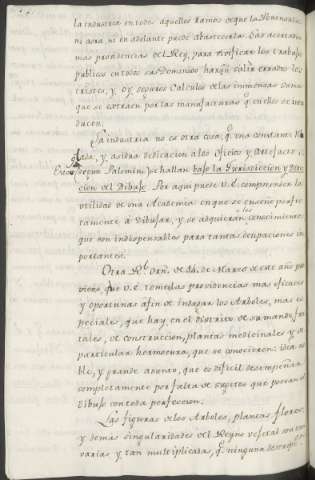 la industria en todos aquellos ramos de que la Peninsula
ni aora, ni en adelante puede abastecerla. Las acertadas
mas providencias del Rey, para vivificar los trabajos
publicos en todos sus Dominios harán salir errados los
tristes, y de peores Calculos de las immensas sumas
que se extraen por las manufacturas qe en ellos se intro
ducen.
La industria no es otra cosa, qe una constante
y asidua dedicacion a los Oficios y Artefactos
segun Palomino, se hallan baxo la Jurisdiccion y Direc
cion del Dibujo. Por aqui puede V.E. comprender la
utilidad de una Academia en que se enseñe profic
tamente á Dibujar, y se adquieran los conocimientos
que son indispensables para tantas ocupaciones im
portantes.
Otra Rl. Orn. de 24. de Marzo de este año pre
viene que V.E. tome las providencias mas eficaces
y oportunas afin de indagar los Arboles, mas es
peciales, que hay en el distrito de su mando, fru
tales, de construccion, plantas medicinales y de
particular hermosura, que se conocieren: idea no
ble, y grande asunto, que es dificil desempeñar
completamente por falta de sugetos que posean el
Dibujo con toda perfeccion.
Las figuras de los Arboles, plantas, flores,
y demas singularidades del Reyno vejetal son tan
varias, y tan multiplicadas, qe ninguna descripcion